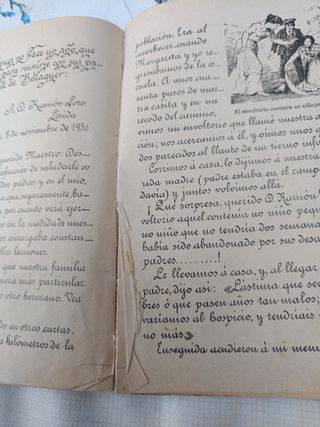 se hace un año que
para reunirse con sus pa-
de Balaguer:
A. D. Ramón Soto
Lérida
8 de noviembre de 1930
querido Maestro: Des-
satisfacción de saludarle co
padre y en el mío,
que, separadamente, ha-
por cuanto verá ejer-
en la medida de mis
encargaba constan-
lecciones.
que nuestra familia
manera más particular.
otro hermano. Vea
en otras cartas,
kilómetros de la
población. Era al
anochecer, cuando
Margarita y yo re-
gresábamos de la es-
cuela. A unos cua-
renta pasos de nues-
tra casita y en me
recodo del camino,
vimos un envoltorio que llamó nuestra a
ción; nos acercamos á él, y oímos unos g
dos parecidos al llanto de un tierno infa
Corrimos á casa, lo dijimos á nuestra
rida madre (padre estaba en el campo
davía) y juntos volvimos allá.
¡Qué sorpresa, querido D. Ramón!
voltorio aquel contenía un niño peque
no niño que no tendría dos semana
había sido abandonado por sus desa
padres.........!
Le llevamos á casa, y, al llegar
padre, dijo así: «Lástima que sea
bres ó que pasen años tan malos;
varíamos al hospicio, y tendríais
no más»
Enseguida acudieron á mi mem
El envoltorio contenía un niño pe